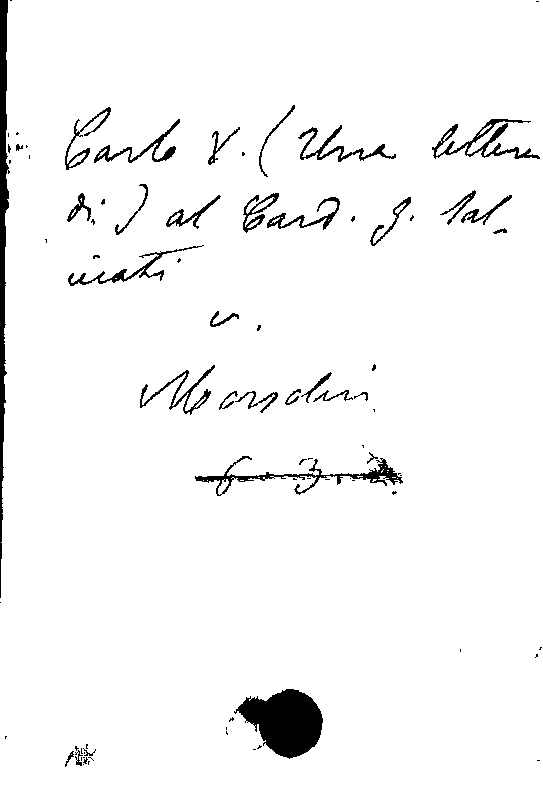 Carlo V. (Una lettera
di) al Card. G. Sal-
viati
v.
Morsolin
6. 3. 2.